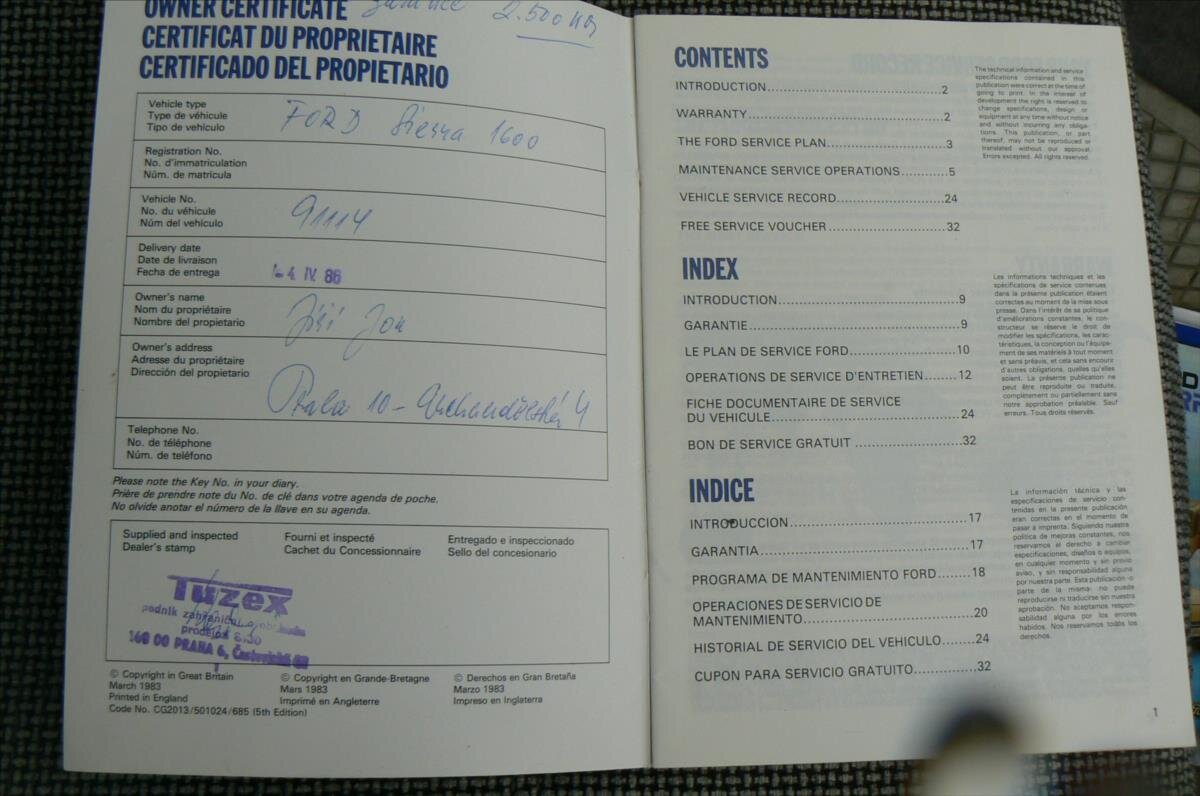 OWNER CERTIFICATE
2.500 Kčs
CERTIFICAT DU PROPRIETAIRE
CERTIFICADO DEL PROPIETARIO
Vehicle type
Type de véhicule
Tipo de vehiculo
FORD Sierra 1600
Registration No.
No. d'immatriculation
Núm. de matrícula
Vehicle No.
No. du véhicule
Núm del vehiculo
91114
Delivery date
Date de livraison
Fecha de entrega
-4 IV. 86
Owner's name
Nom du propriétaire
Nombre del propietario
Jiří Jon
Owner's address
Adresse du propriétaire
Dirección del propietario
Praha 10 – 4
Telephone No.
No. de téléphone
Núm. de teléfono
Please note the Key No. in your diary.
Prière de prendre note du No. de clé dans votre agenda de poche.
No olvide anotar el número de la llave en su agenda.
Supplied and inspected
Dealer's stamp
Fourni et inspecté
Cachet du Concessionnaire
Entregado e inspeccionado
Sello del concesionario
Tuzex
podnik zahraničního obchodu
prodejna
160 00 PRAHA 6,
© Copyright in Great Britain
March 1983
Printed in England
Code No. CG2013/501024/685 (5th Edition)
© Copyright en Grande-Bretagne
Mars 1983
Imprimé en Angleterre
© Derechos en Gran Bretaña
Marzo 1983
Impreso en Inglaterra
CONTENTS
INTRODUCTION 2
WARRANTY 2
THE FORD SERVICE PLAN 3
MAINTENANCE SERVICE OPERATIONS 5
VEHICLE SERVICE RECORD 24
FREE SERVICE VOUCHER 32
The technical information and service
specifications contained in this
publication were correct at the time of
going to print. In the interest of
development the right is reserved to
change specifications, design or
equipment at any time without notice
and without incurring any obliga-
tions. This publication, or part
thereof, may not be reproduced or
translated without our approval.
Errors excepted. All rights reserved.
INDEX
INTRODUCTION 9
GARANTIE 9
LE PLAN DE SERVICE FORD 10
OPERATIONS DE SERVICE D'ENTRETIEN 12
FICHE DOCUMENTAIRE DE SERVICE
DU VEHICULE 24
BON DE SERVICE GRATUIT 32
Les informations techniques et les
spécifications de service contenues
dans la présente publication étaient
correctes au moment de la mise sous
presse. Dans l'intérêt de sa politique
d'améliorations constantes, le con-
structeur se réserve le droit de
modifier les spécifications, les carac-
téristiques, la conception ou l'équipe-
ment de ses matériels à tout moment
et sans préavis, et cela sans encourir
d'autres obligations, quelles qu'elles
soient. La présente publication ne
peut être reproduite ou traduite,
complètement ou partiellement sans
notre approbation préalable. Sauf
erreurs. Tous droits réservés.
INDICE
INTRODUCCION 17
GARANTIA 17
PROGRAMA DE MANTENIMIENTO FORD 18
OPERACIONES DE SERVICIO DE
MANTENIMIENTO 20
HISTORIAL DE SERVICIO DEL VEHICULO 24
CUPON PARA SERVICIO GRATUITO 32
La información técnica y las
especificaciones de servicio con-
tenidas en la presente publicación
eran correctas en el momento de
pasar a imprenta. Siguiendo nuestra
política de mejoras constantes, nos
reservamos el derecho a cambiar
especificaciones, diseños o equipos,
en cualquier momento y sin previo
aviso, y sin responsabilidad alguna
por nuestra parte. Esta publicación o
parte de la misma no puede
reproducirse ni traducirse sin nuestra
aprobación. No aceptamos respon-
sabilidad alguna por los errores
habidos. Nos reservamos todos los
derechos.
1